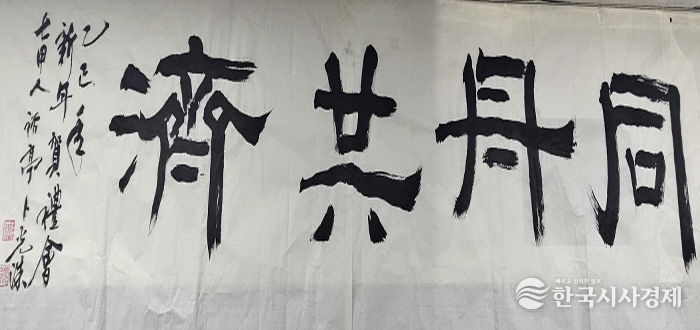 同舟共濟
乙巳年
新年賀禮會
甲人 亭 卜光洙
한국시사경제